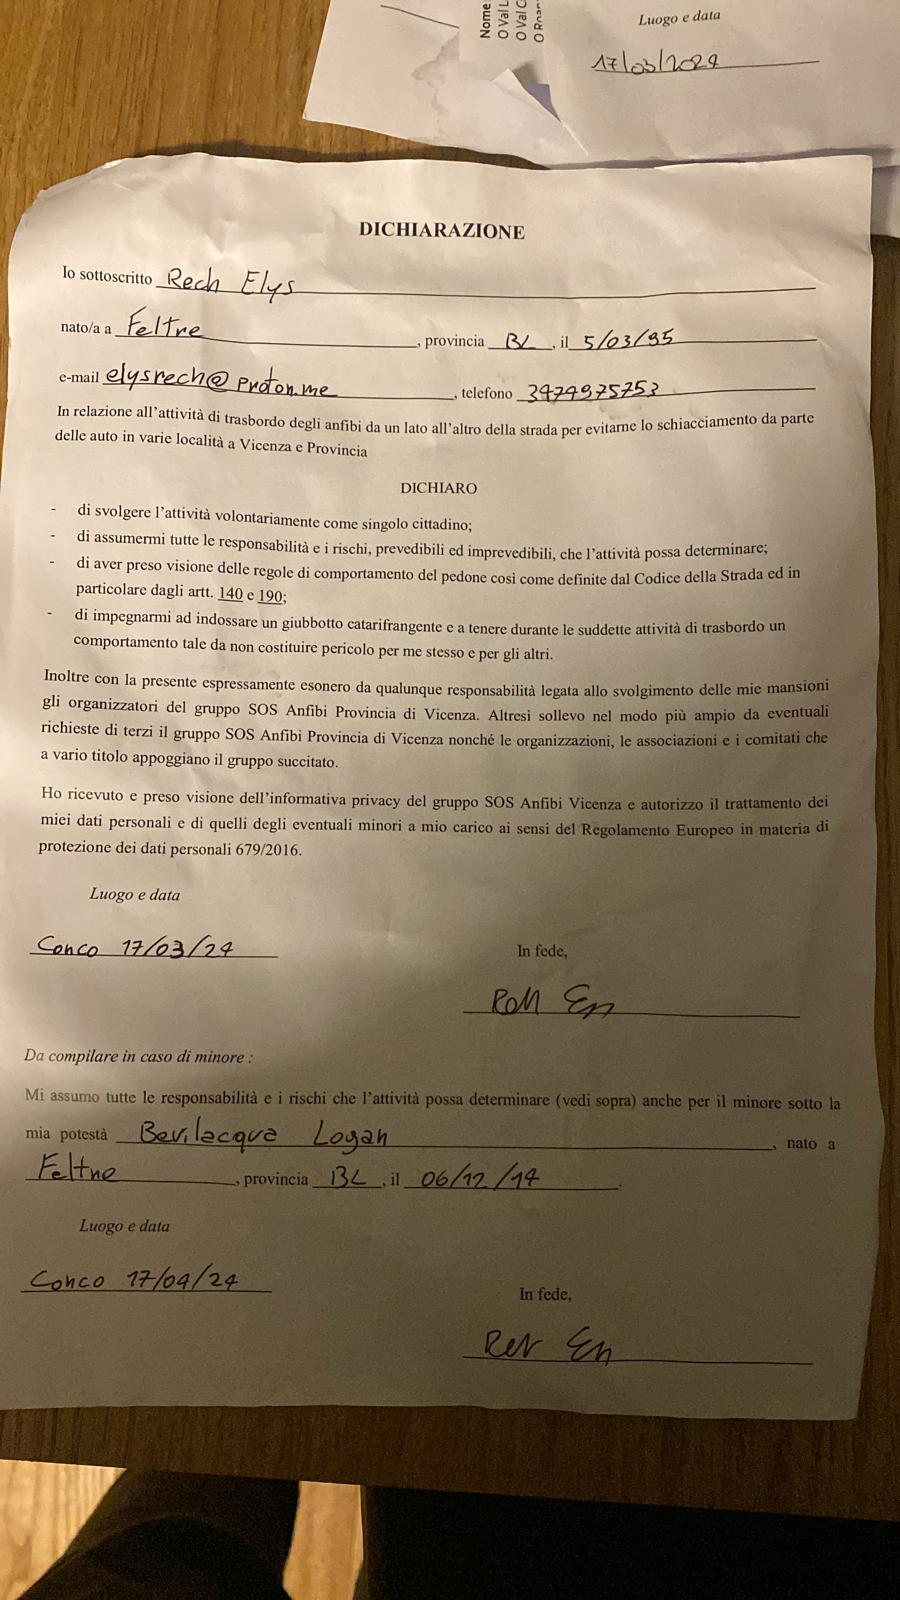 Nome
O Val L
O Val C
Luogo e data
17/03/2024
DICHIARAZIONE
Io sottoscritto Rech Elys
nato/a a Feltre, provincia BL, il 5/03/95
e-mail elysrech@proton.me, telefono 3474975753
In relazione all'attività di trasbordo degli anfibi da un lato all'altro della strada per evitarne lo schiacciamento da parte
delle auto in varie località a Vicenza e Provincia
DICHIARO
- di svolgere l'attività volontariamente come singolo cittadino;
- di assumermi tutte le responsabilità e i rischi, prevedibili ed imprevedibili, che l'attività possa determinare;
- di aver preso visione delle regole di comportamento del pedone così come definite dal Codice della Strada ed in
particolare dagli artt. 140 e 190;
- di impegnarmi ad indossare un giubbotto catarifrangente e a tenere durante le suddette attività di trasbordo un
comportamento tale da non costituire pericolo per me stesso e per gli altri.
Inoltre con la presente espressamente esonero da qualunque responsabilità legata allo svolgimento delle mie mansioni
gli organizzatori del gruppo SOS Anfibi Provincia di Vicenza. Altresì sollevo nel modo più ampio da eventuali
richieste di terzi il gruppo SOS Anfibi Provincia di Vicenza nonché le organizzazioni, le associazioni e i comitati che
a vario titolo appoggiano il gruppo succitato.
Ho ricevuto e preso visione dell'informativa privacy del gruppo SOS Anfibi Vicenza e autorizzo il trattamento dei
miei dati personali e di quelli degli eventuali minori a mio carico ai sensi del Regolamento Europeo in materia di
protezione dei dati personali 679/2016.
Luogo e data
Conco 17/03/24
In fede,
Da compilare in caso di minore :
Mi assumo tutte le responsabilità e i rischi che l'attività possa determinare (vedi sopra) anche per il minore sotto la
mia potestà Bevilacqua Logan, nato a
Feltre, provincia BL, il 06/12/14.
Luogo e data
Conco 17/04/24
In fede,